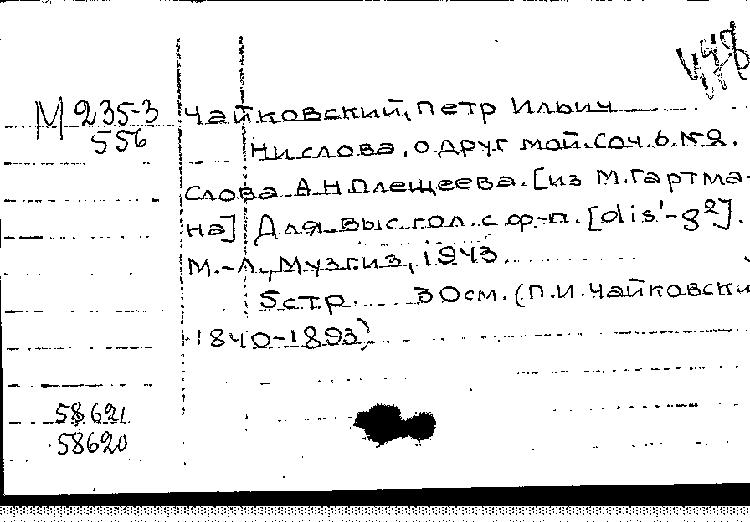 448
М 235-3
556
Чайковский, Петр Ильич
Ни слова, о друг мой. Соч. 6. № 2.
Слова А.Н. Плещеева. [из М. Гартма-
на] Для выс. гол. с ф-п. [dis¹-g²].
М.-Л., Музгиз, 1943.
5 стр. 30 см. (П.И. Чайковски
1840-1893)
58621
58620